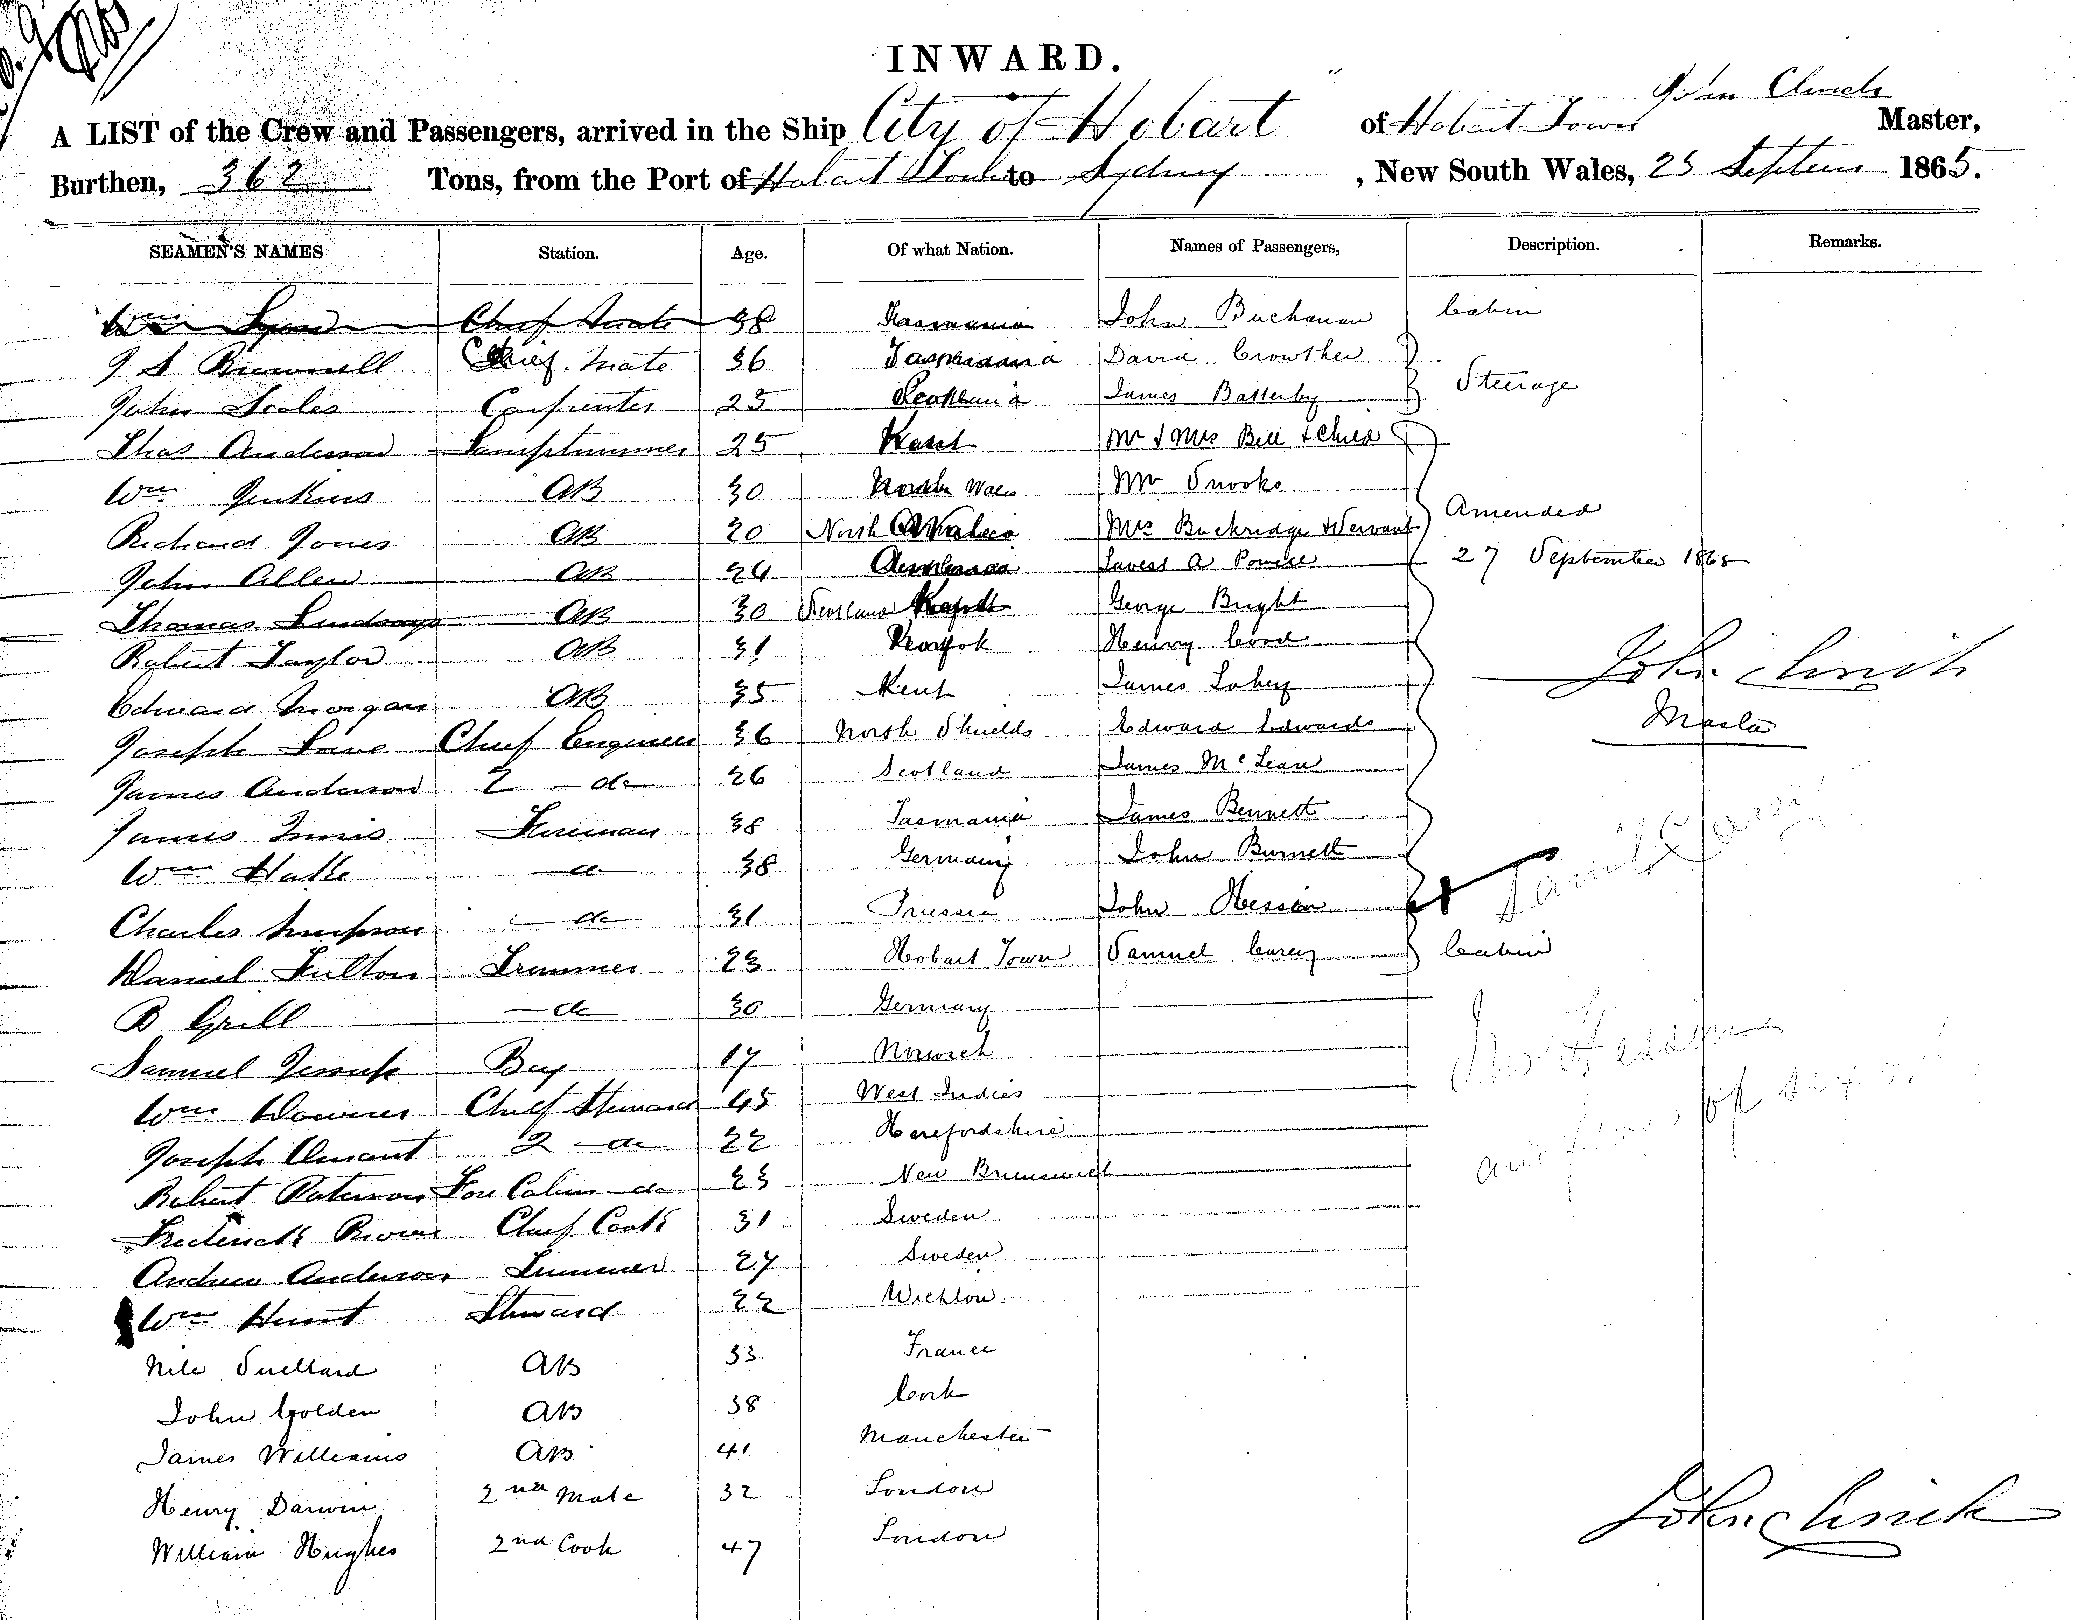 INWARD.
John Clinch
A LIST of the Crew and Passengers, arrived in the Ship City of Hobart of Hobart Town Master,
Burthen, 362 Tons, from the Port of Hobart Town to Sydney, New South Wales, 25 Septem 1865.
SEAMEN'S NAMES Station. Age. Of what Nation. Names of Passengers, Description. Remarks.
Wm Lyon Chief Mate 38 Tasmania John Buchanan Cabin
Chief Mate 36 Tasmania David Crowther
John Scoles Carpenter 25 James Batterby Steerage
Thos Anderson Lamptrimmer 25 Mr & Mrs Bell & Child
Wm Jenkins AB 30 North Wales Mr Snooks
Richard Jones AB 20 North Wales Mrs Buckridge & Servant Amended
John Allen AB 24 A 27 September 1865
Thomas Lindsay AB 30 Scotland George Bright
Robert Taylor AB 31 Henry Cood
Edward Morgan AB 35 Kent James Tobey
John Clinch
Master
Joseph Lowe Chief Engineer 36 North Shields Edward Edwards
James Anderson 2 do 26 Scotland James McLean
James Innis Fireman 38 Tasmania James Bennett
Wm Halke do 38 Germany John Burnett
Charles Simpson do 31 Prussia John Hessin
Daniel Fulton Trimmer 23 Hobart Town Samuel Carey Cabin
B Grill do 30 Germany
Samuel Boy 17 Norwich
Wm Downes Chief Steward 45 West Indies
Joseph 2 do 22 Herefordshire
Robert Paterson Fore Cabin do 23 New Brunswick
Frederick Chief Cook 31 Sweden
Andrew Anderson Trimmer 27 Sweden
Wm Hunt Steward 22 Wicklow
33 France
AB
John Golden AB 38 Cork
James Williams AB 41 Manchester
Henry Darwin 2nd Mate 32 London
William Hughes 2nd Cook 47 London
John Clinch